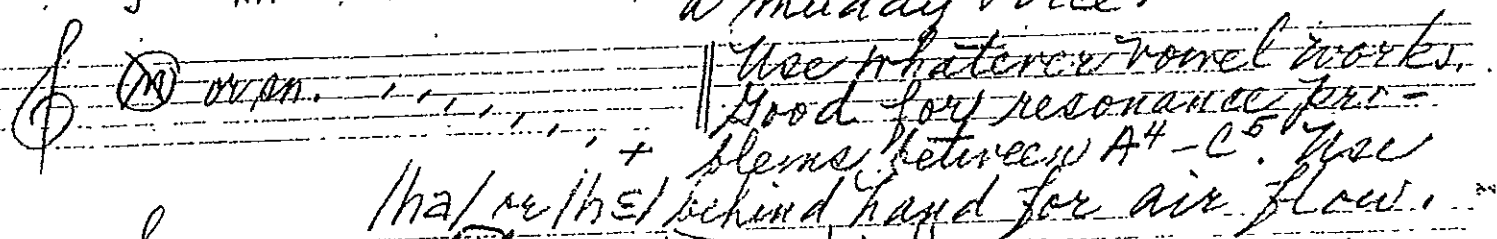 a muddy voice.
(m) or pn. ' ' ' ' ' ' ' + || Use whatever vowel works.
Good for resonance pro-
blems between A4 - C5. Use
/ha/ or /hɛ/ behind hand for air flow.